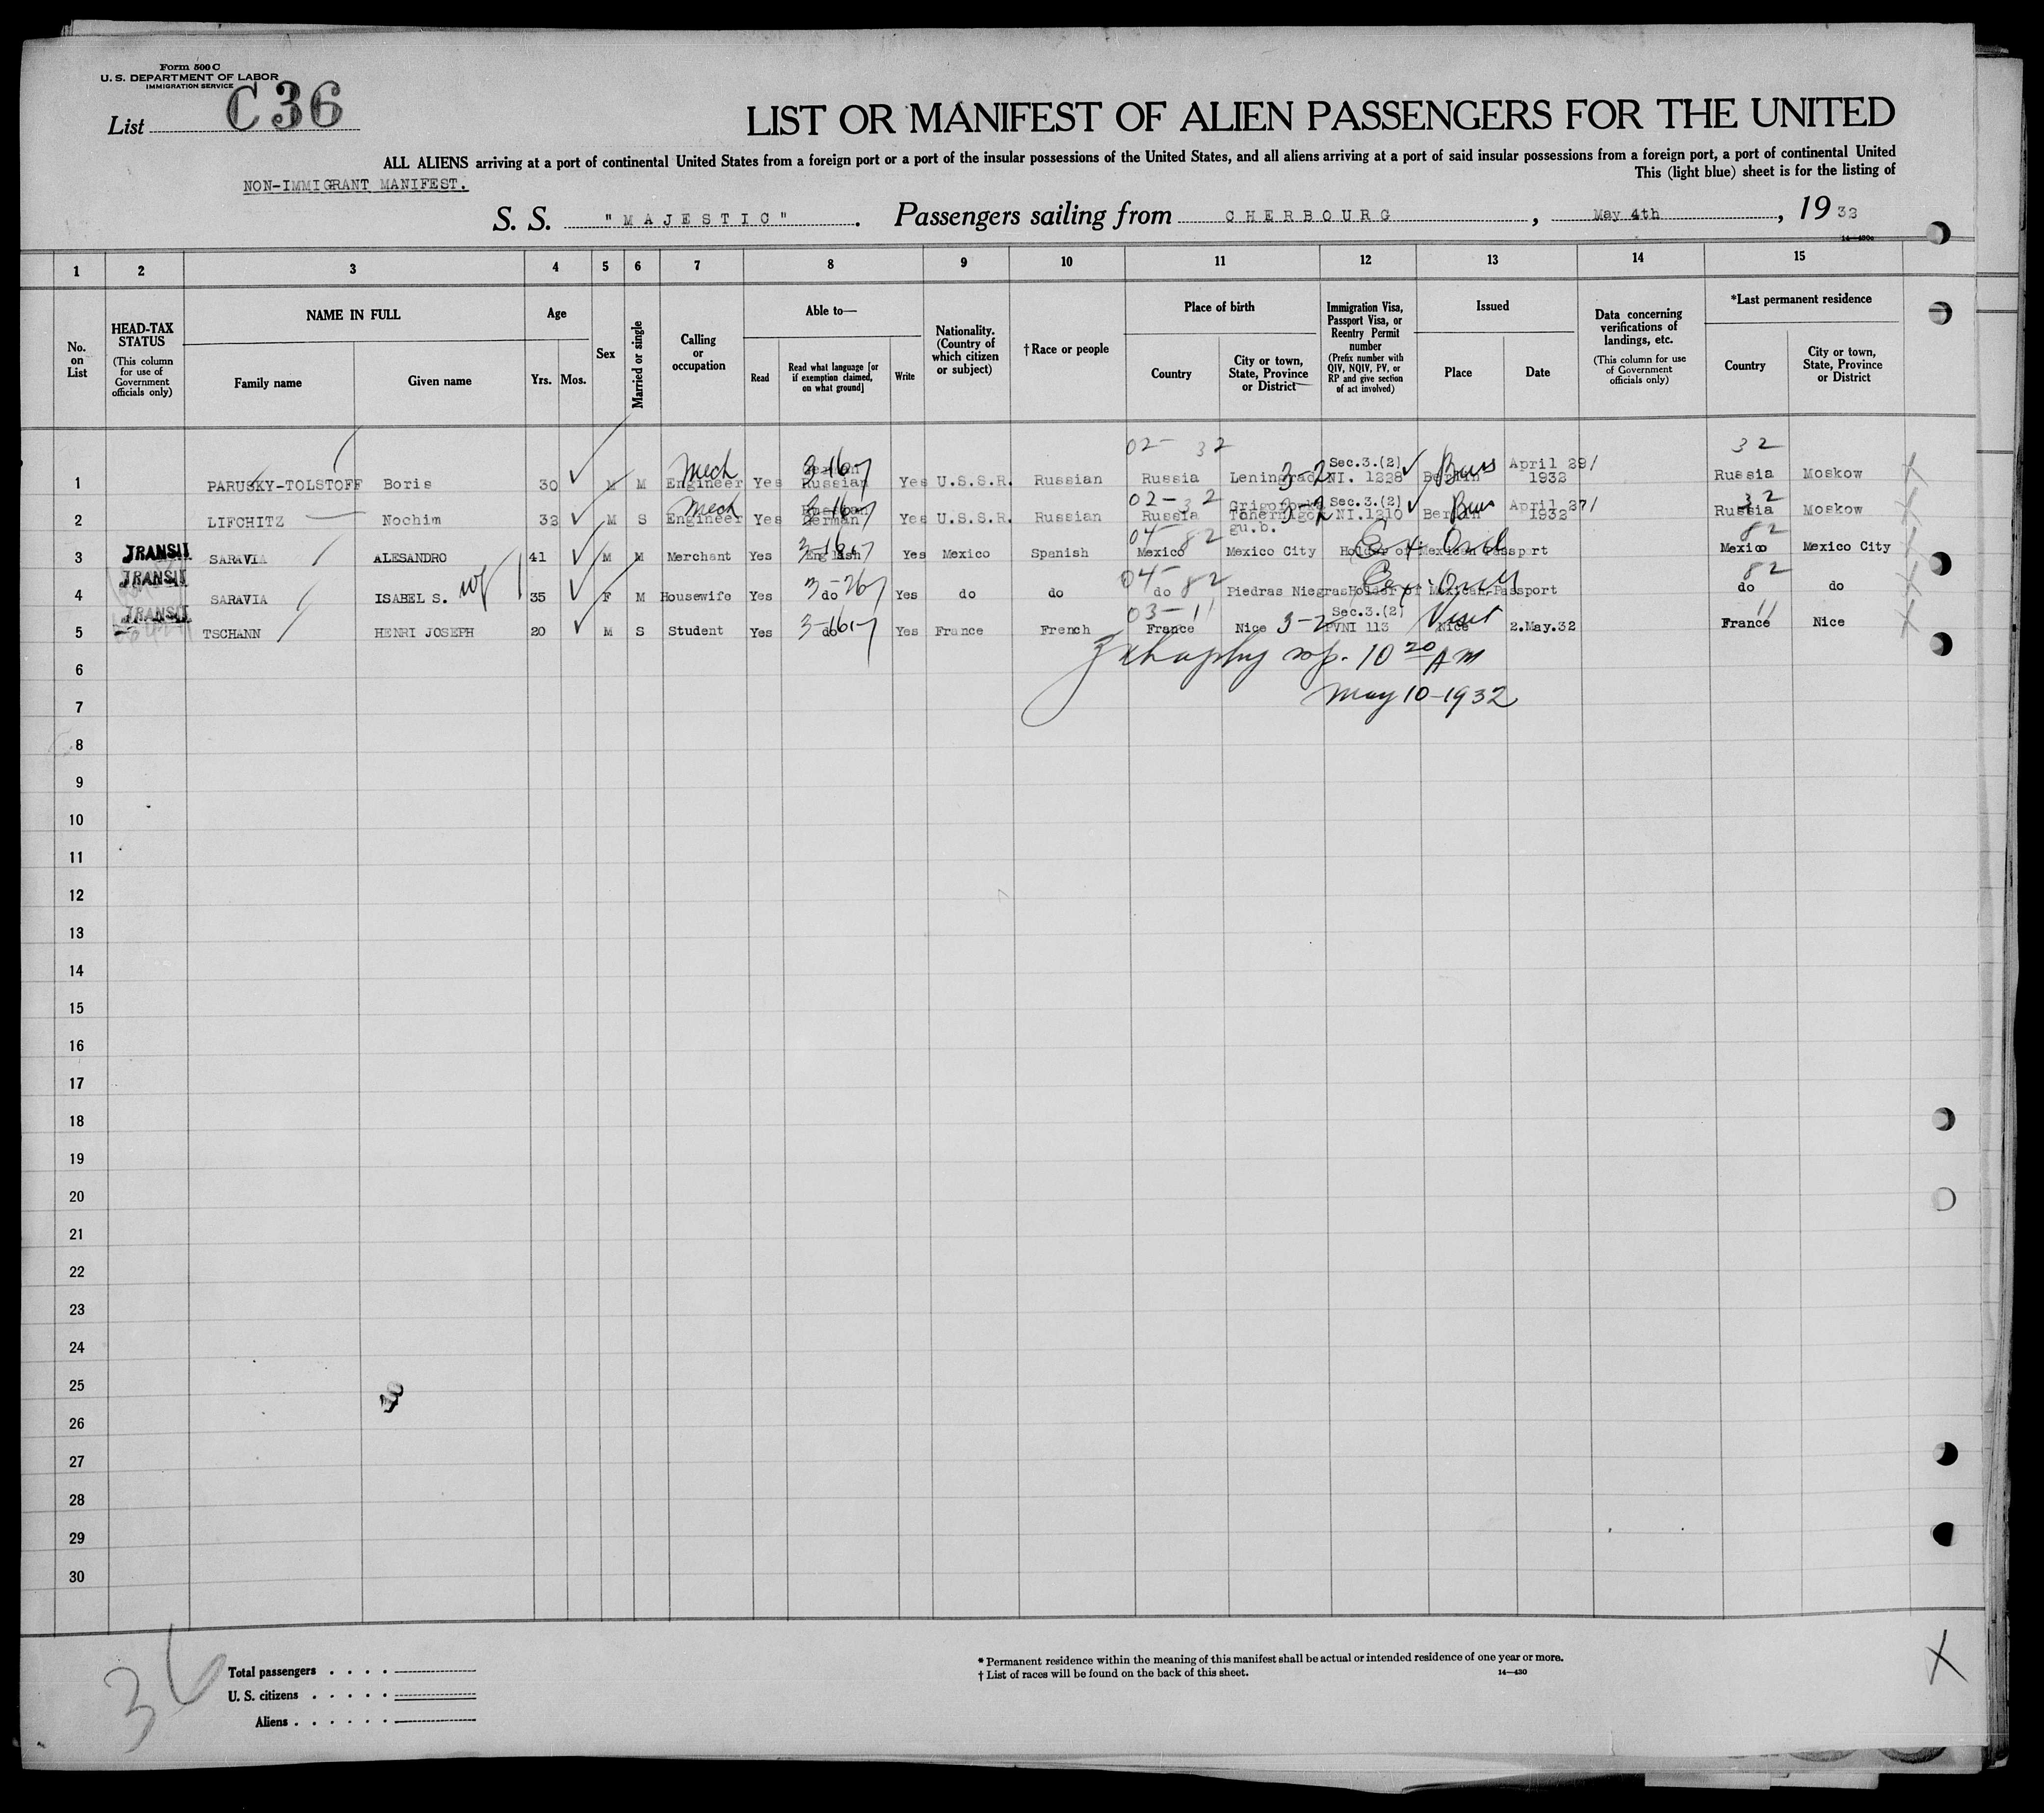 Form 500 C
U. S. DEPARTMENT OF LABOR
IMMIGRATION SERVICE
List C36
LIST OR MANIFEST OF ALIEN PASSENGERS FOR THE UNITED
ALL ALIENS arriving at a port of continental United States from a foreign port or a port of the insular possessions of the United States, and all aliens arriving at a port of said insular possessions from a foreign port, a port of continental United
This (light blue) sheet is for the listing of
NON-IMMIGRANT MANIFEST.
S. S. "MAJESTIC". Passengers sailing from CHERBOURG, May 4th, 1932
14—430c
1 2 3 4 5 6 7 8 9 10 11 12 13 14 15
No. on List
HEAD-TAX STATUS (This column for use of Government officials only)
NAME IN FULL
Family name Given name
Age
Yrs. Mos.
Sex
Married or single
Calling or occupation
Able to—
Read
Read what language [or if exemption claimed, on what ground]
Write
Nationality. (Country of which citizen or subject)
†Race or people
Place of birth
Country
City or town, State, Province or District
Immigration Visa, Passport Visa, or Reentry Permit number (Prefix number with QIV, NQIV, PV, or RP and give section of act involved)
Issued
Place Date
Data concerning verifications of landings, etc. (This column for use of Government officials only)
*Last permanent residence
Country
City or town, State, Province or District
02- 32 32
1 PARUSKY-TOLSTOFF Boris 30 M M Mech Engineer Yes German Russian 3-16-7 Yes U.S.S.R. Russian Russia Leningrad 3-2 Sec.3.(2) NI. 1228 Berlin Bus April 29/ 1932 Russia Moskow
02-32 32
2 LIFCHITZ Nochim 32 M S Mech Engineer Yes German 3-16-7 Yes U.S.S.R. Russian Russia Tchernigow gu.b. 3-2 Sec.3.(2) NI.1210 Berlin Bus April 27/ 1932 Russia Moskow
04-82 82
3 TRANSIT SARAVIA ALESANDRO 41 M M Merchant Yes English 3-16-7 Yes Mexico Spanish Mexico Mexico City Holder of Mexican Passport Mexico Mexico City
04-82 82
4 TRANSIT SARAVIA ISABEL S. wf 35 F M Housewife Yes do 3-26-7 Yes do do do Piedras Niegras Holder of Mexican Passport do do
03-11 11
5 TRANSIT TSCHANN HENRI JOSEPH 20 M S Student Yes do 3-16-7 Yes France French France Nice 3-2 Sec.3.(2) PVNI 113 Nice Visit 2.May.32 France Nice
6 10 20 AM
7 May 10-1932
8
9
10
11
12
13
14
15
16
17
18
19
20
21
22
23
24
25
26
27
28
29
30
36
Total passengers
U. S. citizens
Aliens
* Permanent residence within the meaning of this manifest shall be actual or intended residence of one year or more.
† List of races will be found on the back of this sheet.
14—430
X